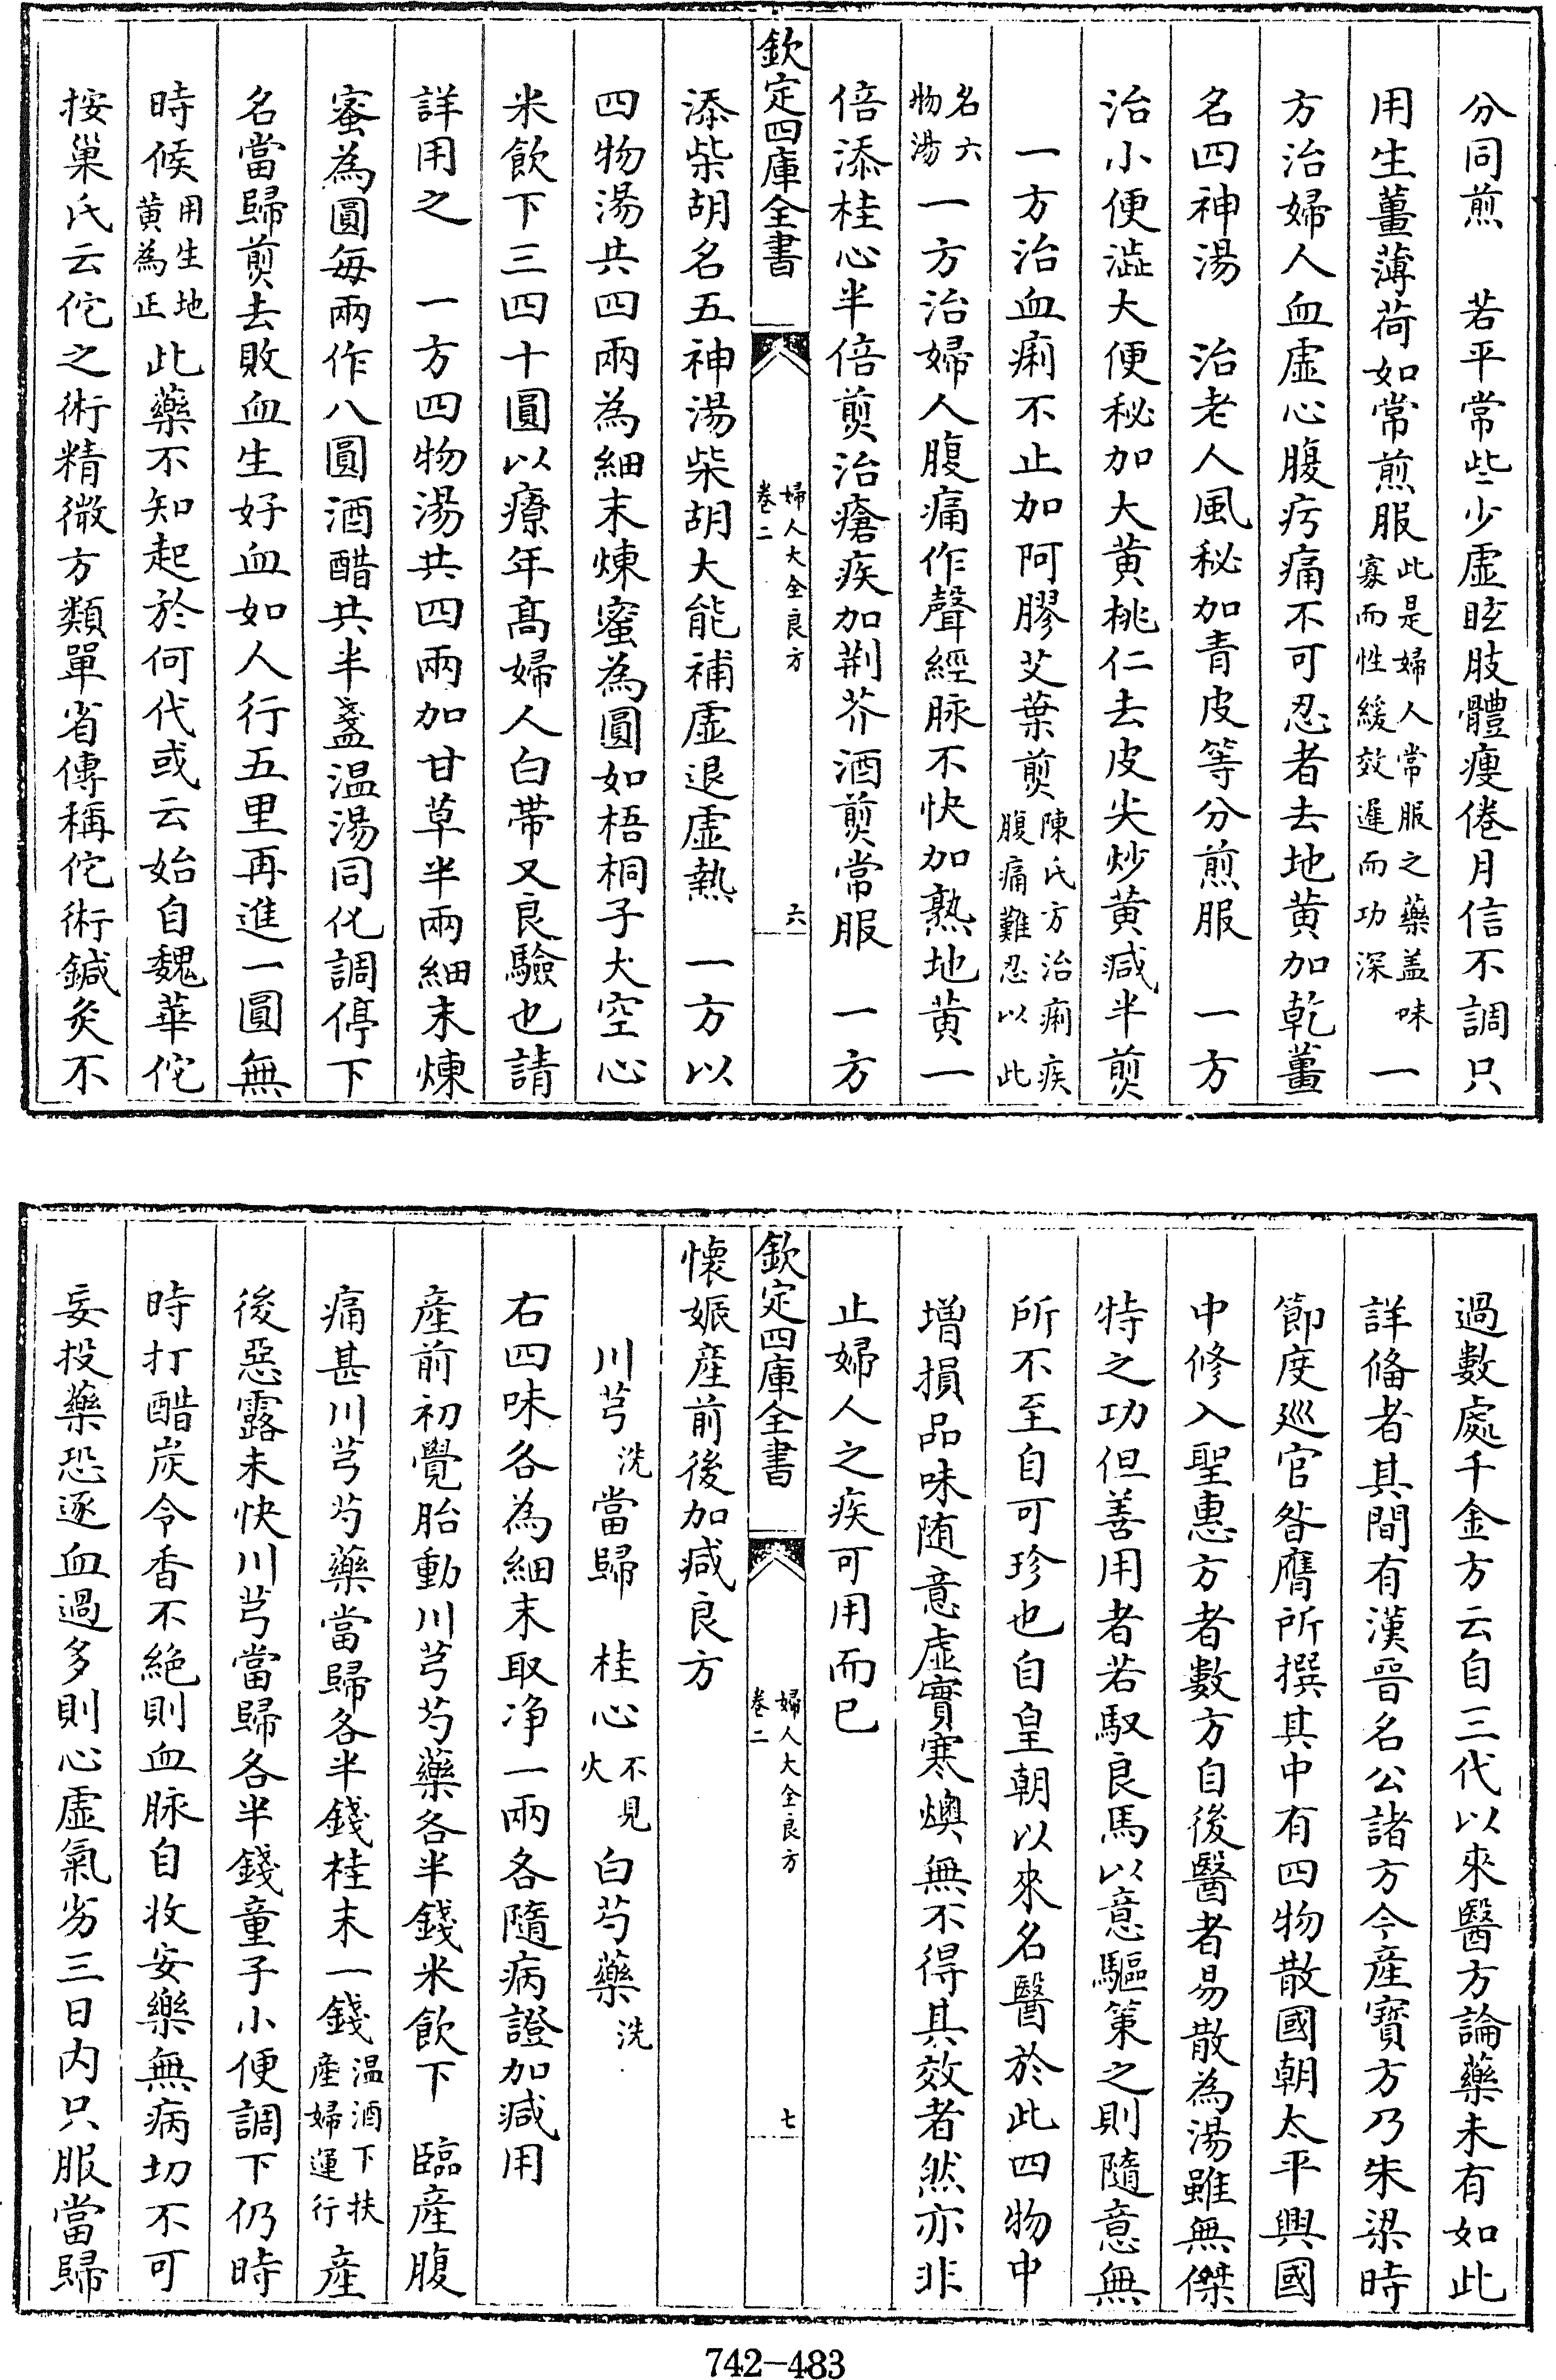 分同煎　若平常些少虚眩肢體瘦倦月信不調只
用生薑薄荷如常煎服此是婦人常服之藥盖味寡而性緩效遲而功深一
方治婦人血虚心腹㽲痛不可忍者去地黄加乾薑
名四神湯　治老人風秘加青皮等分煎服　一方
治小便澁大便秘加大黄桃仁去皮尖炒黄减半煎
一方治血痢不止加阿膠艾葉煎陳氏方治痢疾腹痛難忍以此
名六物湯一方治婦人腹痛作聲經脉不快加熟地黄一
倍添桂心半倍煎治瘡疾加荆芥酒煎常服　一方
欽定四庫全書　婦人大全良方卷二　六
添柴胡名五神湯柴胡大能補虚退虚熱　一方以
四物湯共四兩為細末煉蜜為圓如梧桐子大空心
米飲下三四十圓以療年髙婦人白帶又良驗也請
詳用之　一方四物湯共四兩加甘草半兩細末煉
蜜為圓每兩作八圓酒醋共半盞温湯同化調停下
名當歸煎去敗血生好血如人行五里再進一圓無
時候用生地黄為正此藥不知起於何代或云始自魏華佗
按巢氏云佗之術精微方類單省傳稱佗術鍼灸不
過數處千金方云自三代以來醫方論藥未有如此
詳備者其間有漢晉名公諸方今產寳方乃朱梁時
節度廵官昝膺所撰其中有四物散國朝太平興國
中修入聖惠方者數方自後醫者易散為湯雖無傑
特之功但善用者若馭良馬以意驅策之則隨意無
所不至自可珍也自皇朝以來名醫於此四物中
増損品味随意虚實寒燠無不得其效者然亦非
止婦人之疾可用而已
欽定四庫全書　婦人大全良方卷二　七
懷娠產前後加减良方
川芎洗當歸　桂心不見火白芍藥洗
右四味各為細末取净一兩各隨病證加减用
產前初覺胎動川芎芍藥各半錢米飲下　臨產腹
痛甚川芎芍藥當歸各半錢桂末一錢温酒下扶產婦運行產
後惡露未快川芎當歸各半錢童子小便調下仍時
時打醋炭令香不絶則血脉自收安樂無病切不可
妄投藥恐逐血過多則心虚氣劣三日内只服當歸
742-483